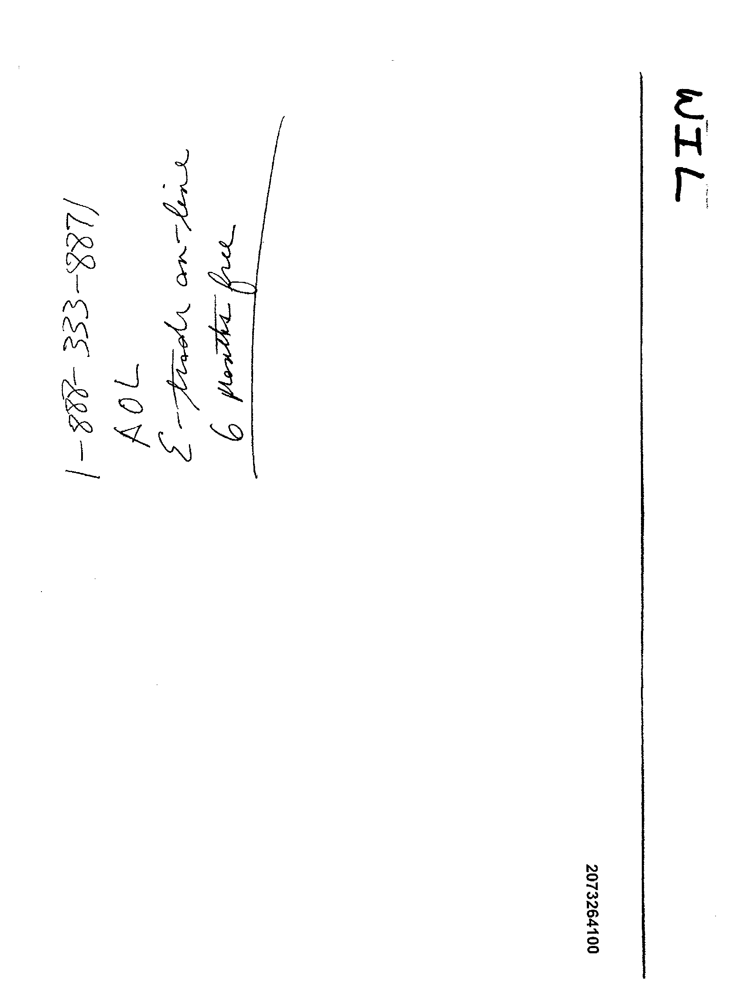 WIL
1-888-333-8871
AOL
E-trade on-line
6 months free
2073264100